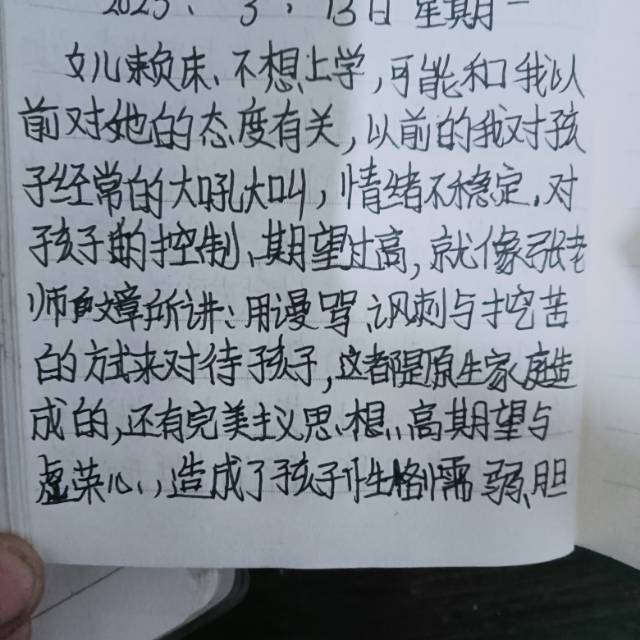 2023、3、13日 星期一
女儿赖床、不想上学，可能和我以
前对她的态度有关，以前的我对孩
子经常的大吼大叫，情绪不稳定，对
孩子的控制、期望过高，就像张老
师文章所讲：用谩骂、讽刺与挖苦
的方式来对待孩子，这都是原生家庭造
成的，还有完美主义思想，高期望与
虚荣心，造成了孩子性格懦弱、胆